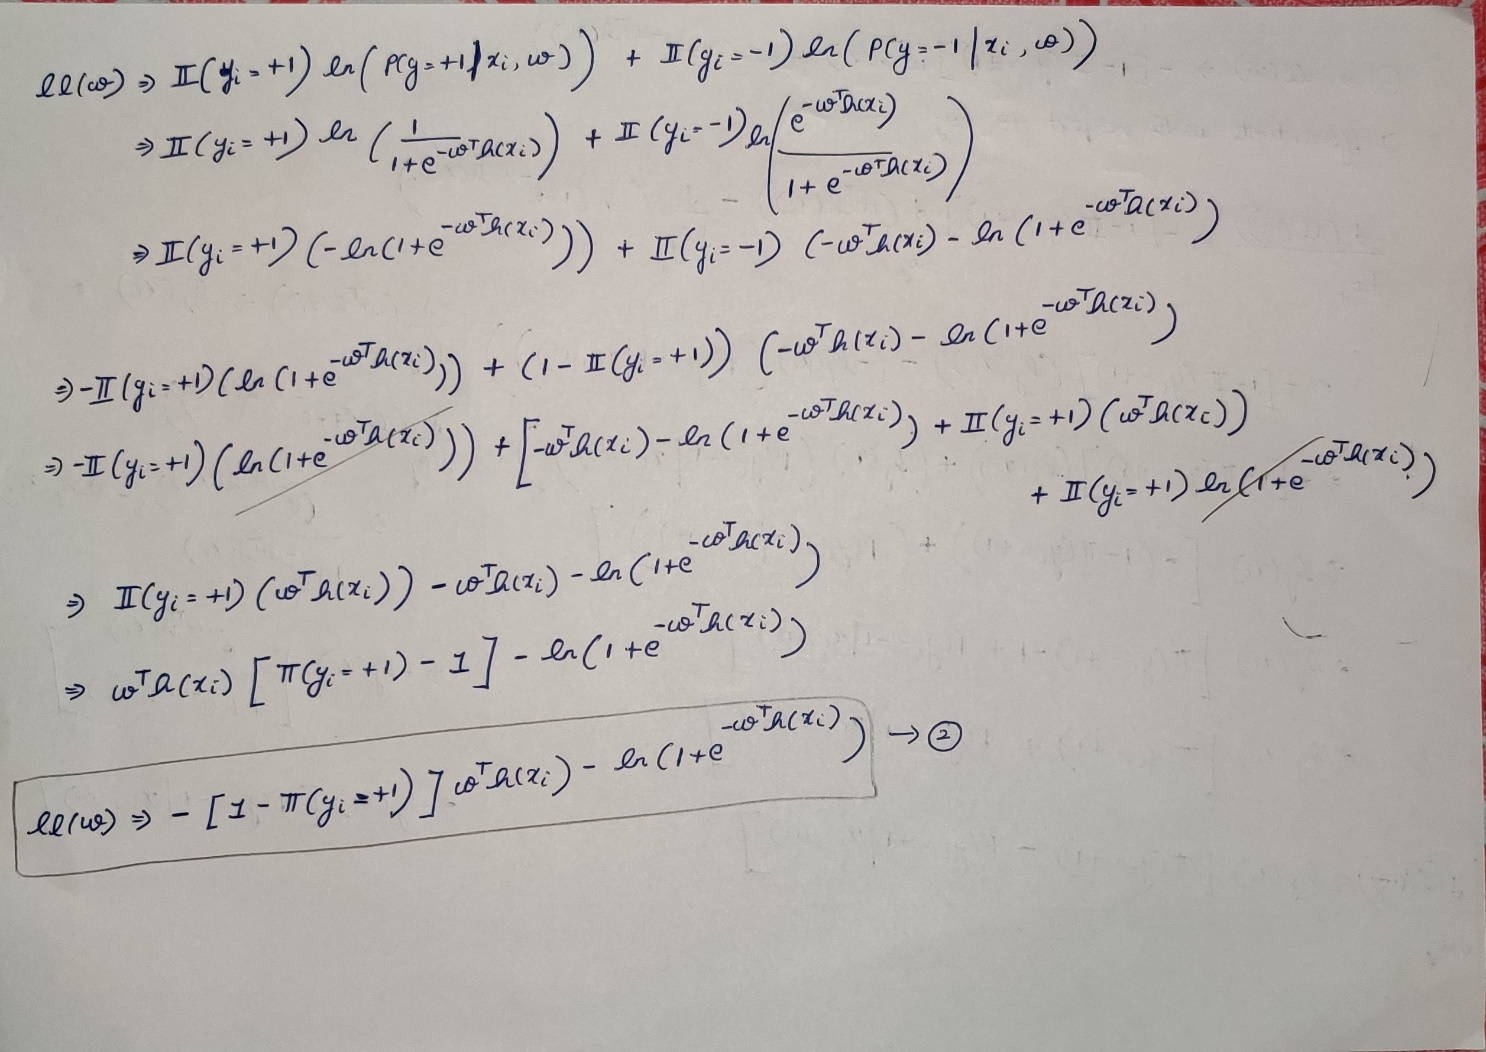 ll(ω) ⇒ 𝟙(yi = +1) ln( P(y=+1 | xi, ω)) + 𝟙(yi = -1) ln( P(y=-1 | xi, ω))
⇒ 𝟙(yi = +1) ln ( 1 / (1+e^{-ω^T h(xi)}) ) + 𝟙(yi = -1) ln ( e^{-ω^T h(xi)} / (1+e^{-ω^T h(xi)}) )
⇒ 𝟙(yi = +1) (-ln(1+e^{-ω^T h(xi)})) + 𝟙(yi = -1) (-ω^T h(xi) - ln (1+e^{-ω^T h(xi)})
⇒ -𝟙(yi = +1) (ln (1+e^{-ω^T h(xi)})) + (1 - 𝟙(yi = +1)) (-ω^T h(xi) - ln (1+e^{-ω^T h(xi)})
⇒ -𝟙(yi = +1) (ln(1+e^{-ω^T h(xi)})) + [-ω^T h(xi) - ln (1+e^{-ω^T h(xi)}) + 𝟙(yi = +1) (ω^T h(xi))
+ 𝟙(yi = +1) ln (1+e^{-ω^T h(xi)})
⇒ 𝟙(yi = +1) (ω^T h(xi)) - ω^T h(xi) - ln (1+e^{-ω^T h(xi)})
⇒ ω^T h(xi) [ 𝟙(yi = +1) - 1 ] - ln (1+e^{-ω^T h(xi)})
ll(ω) ⇒ - [1 - 𝟙(yi = +1) ] ω^T h(xi) - ln (1+e^{-ω^T h(xi)}) → ②